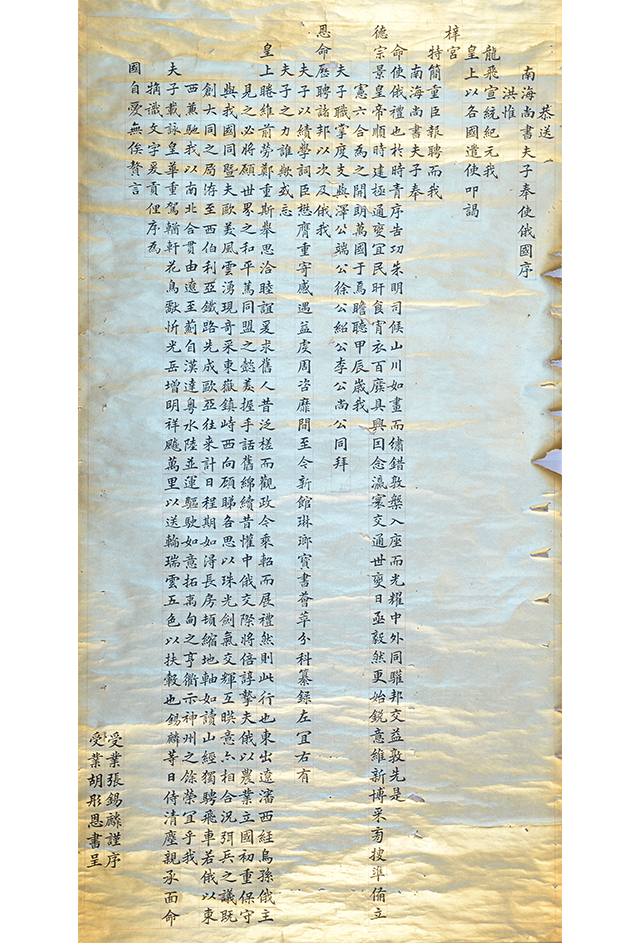 恭送
南海尚書夫子奉使俄國序
洪惟
龍飛宣統紀元我
皇上以各國遣使叩謁
梓宮
特簡重臣報聘而我
南海尚書夫子奉
命使俄禮也於時青序告功朱明司候山川如畫而繡錯敦槃入座而光耀中外同驩邦交益敦先是
德宗景皇帝順時建極通變宜民旰食宵衣百廢具興因念瀛寰交通世變日亟毅然更始銳意維新博采旁搜準備立
憲六合為之開朗萬國于焉瞻聽甲辰歲我
夫子職掌度支與澤公端公徐公紹公李公尚公同拜
恩命歷聘諸邦以次及俄我
夫子以績學詞臣懋膺重寄感遇益虔周咨靡間至今新館琳瑯寶書薈萃分科纂錄左宜右有
夫子之力誰歟或忘
皇上睠維前勞鄭重斯舉思洽睦誼爰求舊人昔泛槎而觀政今乘軺而展禮然則此行也東出遼瀋西經烏孫俄主
見之必將願世界之和平篤同盟之懿美握手話舊綿續昔懽中俄交際將倍諄摯夫俄以農業立國初重保守
與我國同暨夫歐美風雲湧現奇采東嶽鎮峙西向顧睇各思以珠光劍氣交輝互暎意亦相合況弭兵之議既
創大同之局洊至西伯利亞鐵路先成歐亞往來計日程期如潯長房頓縮地軸如讀山經獨騁飛車若俄以東
西兼馳我以南北合貫由遼至薊自漢達粵水陸並運驅駛如意拓禹甸之亨衢示神州之餘榮宜乎我
夫子載詠皇華重駕輶軒花鳥歡忻光岳增明祥飈萬里以送輪瑞雲五色以扶轂也錫麟等日侍清塵親承面命
猶識文字爰貢俚序為
國自愛無俟贅言
受業張錫麟謹序
受業胡彤恩書呈